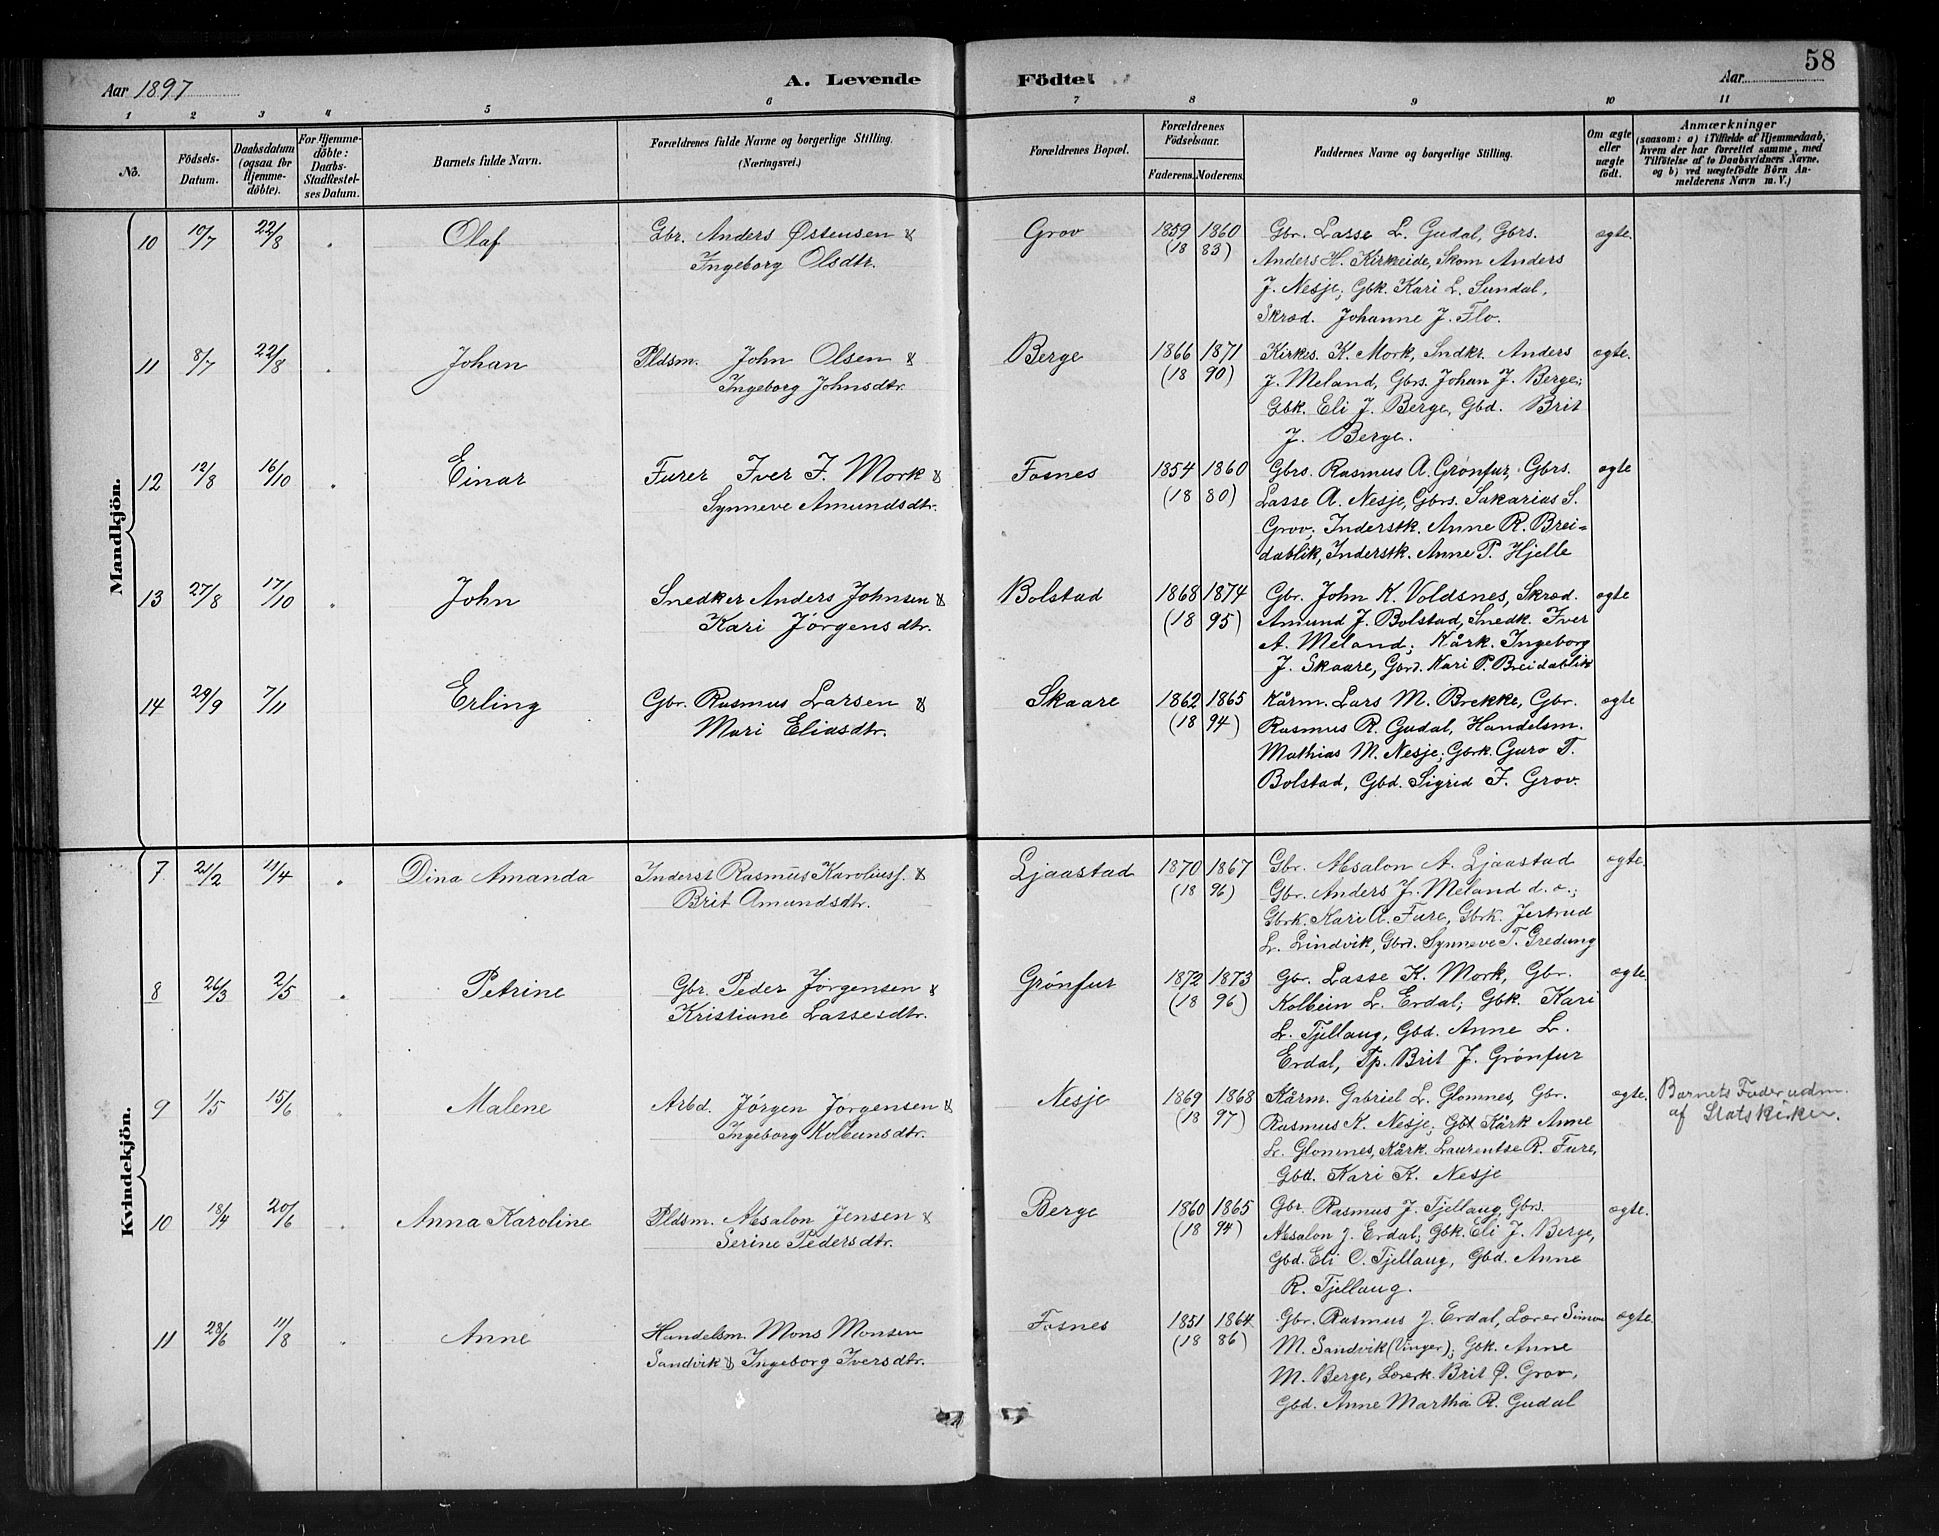 58
Aar 1897 A. Levende Födte. Aar
1 2 3 4 5 6 7 8 9 10 11
No. Födsels-Datum. Daabsdatum (ogsaa for Hjemme-döbte). For Hjemme-döbte: Daabs-Stadfæstel-ses Datum. Barnets fulde Navn. Forældrenes fulde Navne og borgerlige Stilling. (Næringsvei.) Forældrenes Bopæl. Forældrenes Födselsaar. Faderens. Moderens. Faddernes Navne og borgerlige Stilling. Om ægte eller uægte födt. Anmærkninger (saasom: a) i Tilfælde af Hjemmedaab, hvem der har forrettet samme, med Tilföielse af to Daabsvidners Navne. og b) ved uægtefödte Börn An-melderens Navn m. V.)
Mandkjön.
10 10/7 22/8 " Olaf Gbr. Anders Østensen & Grov 1859 1860 Gbr. Lasse L. Gudal, Gbrs. ægte.
Ingeborg Olsdtr. (18 83) Anders H. Kirkeide, Skom Anders
J. Nesje; Gbk. Kari L. Sundal,
Skræd. Johanne J. Flo.
11 8/7 22/8 " Johan Pldsm. John Olsen & Berge 1866 1871 Kirkes. K. Mork, Sndkr. Anders ægte.
Ingeborg Johnsdtr. (18 90) J. Meland, Gbrs. Johan J. Berge;
Gbk. Eli J. Berge, Gbd. Brit
J. Berge.
12 12/8 16/10 " Einar Furer Iver F. Mork & Fosnes 1854 1860 Gbrs. Rasmus A. Grønfur, Gbrs. ægte
Synneve Amundsdtr. (18 80) Lasse A. Nesje, Gbrs. Sakarias S.
Grov; Inderstk. Anne R. Brei=
dablik, Inderstk. Anne P. Hjelle
13 27/8 17/10 " John Snedker Anders Johnsen & Bolstad 1868 1874 Gbr. John K. Voldsnes, Skræd. ægte
Kari Jørgensdtr. (18 95) Amund J. Bolstad, Snedk. Iver
A. Meland; Kårk. Ingeborg
J. Skaare, Gbrd. Kari P. Breidablik
14 29/9 7/11 Erling Gbr. Rasmus Larsen & Skaare 1862 1865 Kårm. Lars M. Brekke, Gbr. ægte
Mari Eliasdtr. (18 94) Rasmus R. Gudal, Handelsm.
Mathias M. Nesje; Gbrk. Guro T.
Bolstad, Gbd. Sigrid F. Grov.
Kvindekjön.
7 21/2 11/4 " Dina Amanda Inderst Rasmus Karoliusf. & Ljaastad 1870 1867 Gbr. Absalon A. Ljaastad ægte.
Brit Amundsdtr. (18 96) Gbr. Anders J. Meland d. o.;
Gbrk. Kari A. Fure, Gbrk. Jertrud
L. Lindvik, Gbrd. Synneve T. Gredung
8 26/3 2/5 " Petrine Gbr. Peder Jørgensen & Grønfur 1872 1873 Gbr. Lasse K. Mork, Gbr. ægte.
Kristiane Lassesdtr. (18 96) Kolbein L. Erdal; Gbk. Kari
L. Tjellaug, Gbd. Anne L.
Erdal, Tp. Brit J. Grønfur
9 1/5 15/6 " Malene Arbd. Jørgen Jørgensen & Nesje 1869 1868 Kårm. Gabriel L. Glomnes, Gbr. ægte. Barnets Fader udm.
Ingeborg Kolbeinsdtr. (18 97) Rasmus K. Nesje; Gbk Kårk Anne af Statskirken.
L. Glomnes, Kårk. Laurentse R. Fure,
Gbd. Kari K. Nesje
10 18/4 20/6 " Anna Karoline Pldsm. Absalon Jensen & Berge 1860 1865 Gbr. Rasmus J. Tjellaug, Gbrs. ægte.
Serine Pedersdtr. (18 94) Absalon J. Erdal; Gbk. Eli J. Berge,
Gbd. Eli O. Tjellaug, Gbd. Anne
R. Tjellaug.
11 28/6 11/8 " Anne Handelsm. Mons Monsen Fosnes 1851 1864 Gbr. Rasmus J. Erdal, Lærer Simon ægte.
Sandvik & Ingeborg Iversdtr. (18 86) M. Sandvik (Vinger); Gbk. Anne
M. Berge, Lærerk. Brit Ø. Grov,
Gbd. Anne Martha R. Gudal